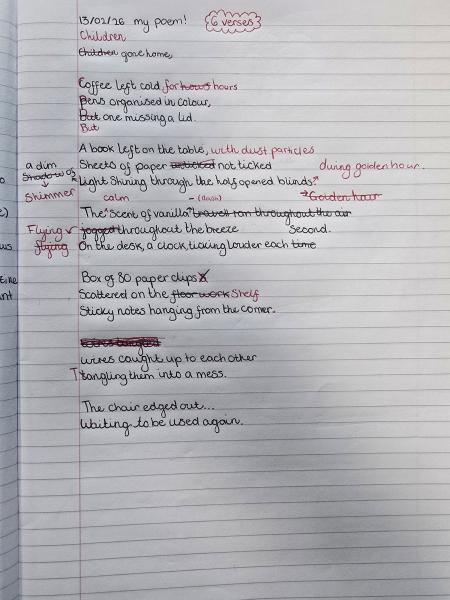 13/02/26 my poem! 6 verses
Children
Children gone home,
Coffee left cold for hours hours
Pens organised in colour,
But one missing a lid.
But
A book left on the table, with dust particles
a dim Sheets of paper not ticked during golden hour.
Shadow of Light Shining through the half opened blinds.
Shimmer calm - (dash) Golden hour
The scent of vanilla travell ran throughout the air
Flying jogged throughout the breeze Second.
flying On the desk, a clock ticking louder each time
Box of 80 paper clips
Scattered on the floor work Shelf
Sticky notes hanging from the corner.
wires caught up to each other
Tangling them into a mess.
The chair edged out...
Waiting to be used again.